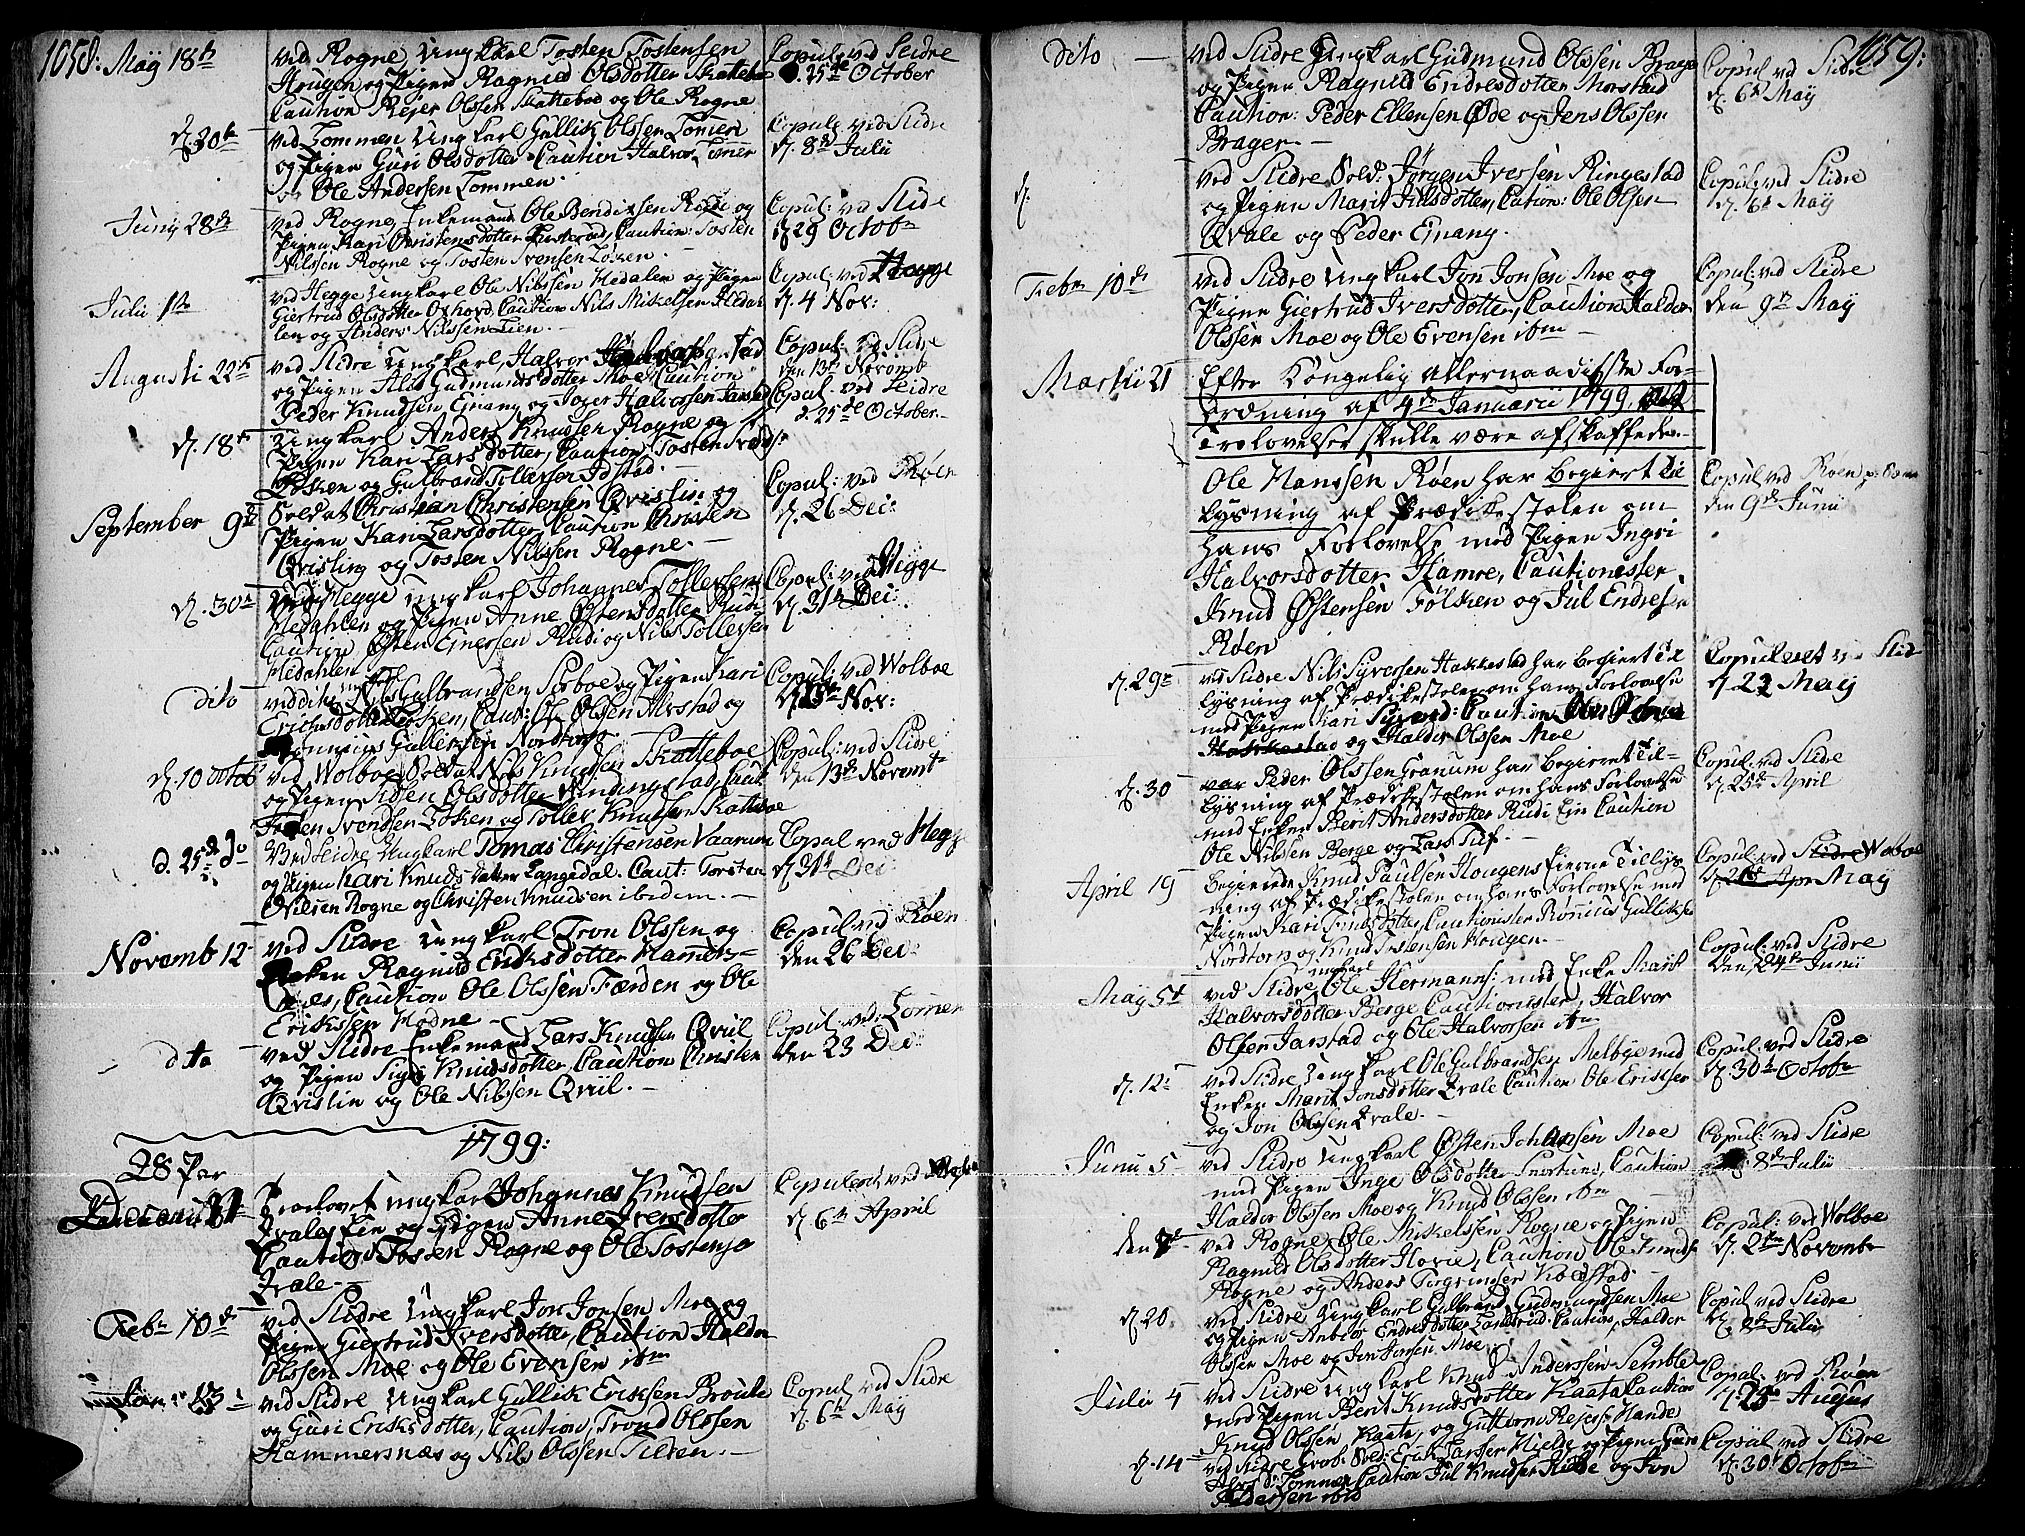 1058:
Maÿ 18de
ved Rogne, Ungkarl Tosten Tostensen
Haugen og Pigen Ragnild Olsdotter Skattebo
Caution Rejer Olssen Skattebo og Ole Rogne
Copul: ved Slidre
d. 25de October
d. 30te
ved Lommen Ungkarl Gullik Olssen Lomen
og Pigen Guri Olsdotter Caution Halvor Lomen
og Ole Andersen Lommen.
Copul: ved Slidre
d. 8de Julii
Junÿ 28de
ved Rogne, Enkemand Ole Bendixsen Rudi og
Pigen Kari Christensdotter Caution: Tosten
Nilssen Rogne og Tosten Svensen Løken.
Copul: ved Slidre
d. 29 Octob
Julii 1te
ved Hegge Ungkarl Ole Nilssen Hedalen og Pigen
Giertrud Olsdotter Oxhovd, Caution Nils Mikelsen Heda-
len og Anders Nilssen Lien.
Copul: ved Hegge
d. 4 Nov:
Augusti 22de
ved Slidre Ungkarl, Halvor
og Pigen Alis Gudmundsdotter Moe, Caution
Peder Knudsen Einang og Halvorsen Jarstad
Copul: ved Slidre
den 13de Novemb
d. 18de
Ungkarl Anders Knudsen Rogne og
Pigen Kari Larsdotter, Caution, Tosten Svends:
Løken og Gulbrand Tollersen Jostad.
Copul. ved Slidre
d. 25de October
September 9de
Soldat Christian Christensen Qvislin og
Pigen Kari Larsdotter, Caution Christen
Qvisling og Tosten Nilssen Rogne.
Copul: ved Røen
d. 26 Dec:
d. 30te
ved Hegge Ungkarl Johannes Tollersen
Hedahlen og Pigen Anne Østensdotter Rudi
Caution Østen Einersen Rudi og Nils Tollersen
Hedahlen
Copul: ved Hegge
d. 31te Dec:
dito
ved dito Gulbrandsen Sørboe og Pigen Kari
Erichsdotter Løken, Caut: Ole Olssen Alvstad og
Rønnius Gullicksen Nordtorp
Copul: ved Wolboe
Nov:
d. 10 Octob
ved Wolboe, Soldat Nils Knudsen Skatteboe
og Pigen Sidsen Olsdotter Vindingstad, Caut
Tosten Svendsen Løken og Toller Knudsen Skatteboe
Copul: ved Slidre
den 13de Novemb
d. 25de
Ved Slidre Ungkarl Tomas Christensen Vaarum
og Pigen Kari Knudsdatter Langedal. Caut: Torsten
Nilsen Rogne og Christen Knudsen ibidem.
Copul ved Hegge
d. 31te Dec:
Novemb 12
ved Slidre Ungkarl Tron Olssen og
Enken Ragnild Eriksdotter Hamers-
næs, Caution Ole Olssen Færden og Ole
Erikssen Hodne
Copul: ved Røen
den 26 Dec:
dito
ved Slidre Enkemand Lars Knudsen Qviil
og Pigen Sigri Knudsdotter, Caution Christen
Qvislin og Ole Nilssen Qviil.
Copul: ved Lomen
den 23 Dec:
1799:
28 Par
Trolovet Ungkarl Johannes Knudsen
Qvale, Ein og Pigen Anne Iversdotter
Caution Tosten Rogne og Ole Tostensen
Qvale.
Copuleret ved
d. 6te April
Febr 10de
ved Slidre Ungkarl Jon Jonsen Moe og
Pigen Giertrud Iversdotter, Caution Haldor
Olssen Moe og Ole Evensen ibm
ved Slidre Ungkarl Gullik Eriksen
og Guri Eriksdotter, Caution, Trond Olssen
Hammersnæs og Nils Olssen
Copul: ved Slidre
d. 6te Maÿ
1059:
dito
ved Slidre Ungkarl Gudmund Olssen Brager
og Pigen Ragnild Endresdotter Morstad
Caution: Peder Ellensen Øde og Jens Olssen
Brager.
Copul ved Slidre
d. 6te Maÿ
d.
ved Slidre Sold: Jørgen Iversen Ringestad
og Pigen Marit Julsdotter, Caution: Ole Olsen
Qvale og Peder Einang.
Copul: ved Slidre
d. 6te Maÿ
Febr 10de
ved Slidre Ungkarl Jon Jonsen Moe og
Pigen Giertrud Iversdotter, Caution Haldor
Olssen Moe og Ole Evensen ibm
Copul: ved Slidre
den 9de Maÿ
Martii 21
Efter Kongelig Allernaadigste For-
ordning af 4de Januarii 1799.
Trolovelser skulle være afskaffede.
Ole Hanssen Røen har begiert Til
Lysning af Prædikestolen om
hans Forlovelse med Pigen Ingri
Halvorsdotter Hamre, Cautionister
Knud Østensen Følsken og Jul Endresen
Røen
Copul ved Røen
den 9de Junii
d. 29de
ved Slidre Nils Syversen Hakkestad har begiert Til
lysning af Prædikestolen om hans Forlovelse
med Pigen Kari Caution
Hakkestad og Haldor Olssen Moe
Copuleret ved Slid
d. 22 Maÿ
d. 30
var Peder Olssen Granum har begieret Til-
lysning af Prædikestolen om hans Forlovelse
med Enken Berit Andersdotter Rudi Ein Caution
Ole Nilssen Berge og Lars
Copul: ved Slidre
d. 25de April
April 19
begierede Knud Paulsen Hougens Eierne Tillys
ning af Prædikestolen om hans Forlovelse med
Pigen Kari Cautionister Rønnius Gulliksen
Nordtorp og Knud Hougen.
Copul: ved Slidre Wolboe
Maÿ
Maÿ 5te
ved Slidre, ungkarl Ole Hermanns: med Enke Marit
Halvorsdotter Berge Cautionister, Halvor
Olssen Jarstad og Ole Halvorsen ibm
Copul: ved Slidre
den 24de Junii
d. 12te
ved Slidre Ungkarl Ole Gulbrandsen Melbye med
Enken Marit Jonsdotter Qvale Caution Ole Eriksen
og Jon Olssen Qvale.
Copul: ved Slidre
d. 30te Octobr
Junii 5
ved Slidre Ungkarl Østen Johansen Moe
med Pigen Inge Olsdotter, Caution
Haldor Olssen Moe og Knud Olssen ibm
Copul: ved Slidre
8de Julii
ved Rogne, Ole Mikelssen Rogne og Pigen
Ragnild Olsdotter Hovie, Caution Ole Knuds
Rogne og Anders Torgrimsen
Copul: ved Wolboe
d. 2den Novembr
d. 20
ved Slidre Ungkarl Gulbrand Gudmundsen Moe
og Pigen Endresdotter Caution, Haldor
Olssen Moe og Jon Jonsen Moe
Copul ved Slidre
d. 8de Julii
Julii 4
ved Slidre Ungkarl Knud Anderssen Semble
med Pigen Berit Knudsdotter Kaata Caution
Knud Olssen Kaata, og Guttorm Rejers: Hande
Copul: ved Røen
Augus
d. 14
ved Slidre Erik Larssen og Pigen Guri
Lommen Caution Jul Knudsen og Jon
Andersen ibid
Copul ved Slidre
d. 30te Octobr